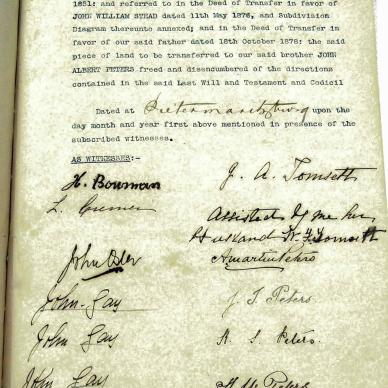 1881: and referred to in the Deed of Transfer in favor of
JOHN WILLIAM STEAD dated 11th May 1876, and Subdivision
Diagram thereunto annexed; and in the Deed of Transfer in
favor of our said father dated 18th October 1878: the said
piece of land to be transferred to our said brother JOHN
ALBERT PETERS freed and disencumbered of the directions
contained in the said Last Will and Testament and Codicil
Dated at Pietermaritzburg upon the
day month and year first above mentioned in presence of the
subscribed witnesses.
AS WITNESSES:-
H. Bowman J. A. Tomsett
L. Assisted by me her
Husband Tomsett
John Peters
John Gay J. T. Peters
John Gay A. S. Peters.
John Gay Peters